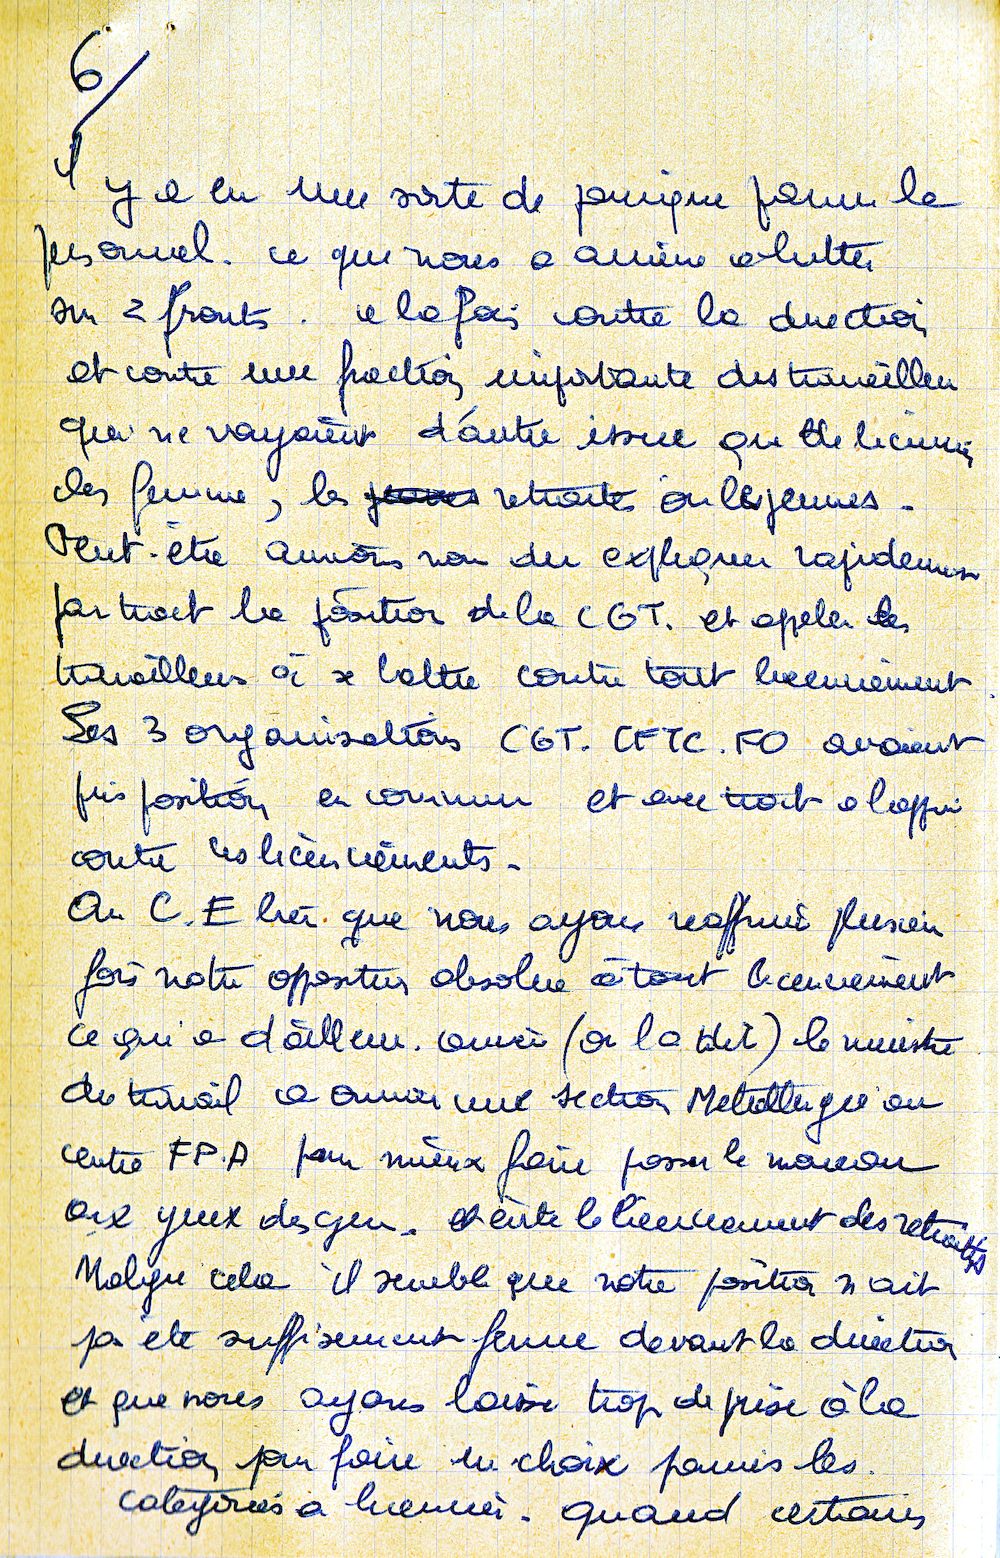 6/
Il y a eu une sorte de panique parmi le
personnel. ce que nous a amene a lutter
sur 2 fronts. a la fois contre la direction
et contre une fraction importante des travailleu
qui ne voyaient d'autre issue que de licencier
les femme, les jeunes retraités ou les jeunes.
Peut-être aurions nous du expliquer rapidement
par tract la position de la CGT. et appeler les
travailleurs à se battre contre tout licenciement.
Les 3 organisations CGT. CFTC. FO avaient
pris position en commun et avec tract a l'appui
contre les licenciements.
Au C.E bien que nous ayons reaffirmé plusieu
fois notre opposition absolue à tout licenciement
ce qui a d'ailleu. amené (on l a dit) le ministre
du travail a ouvrir une section Metallurgie au
centre FPA pour mieux faire passer le morceau
aux yeux des gens. et évite le licenciement des retraités
Malgre cela il semble que notre position n ait
pas été suffisement ferme devant la direction
et que nous ayons laissé trop de prise à la
direction pour faire un choix parmis les
categories a licencier. quand certains